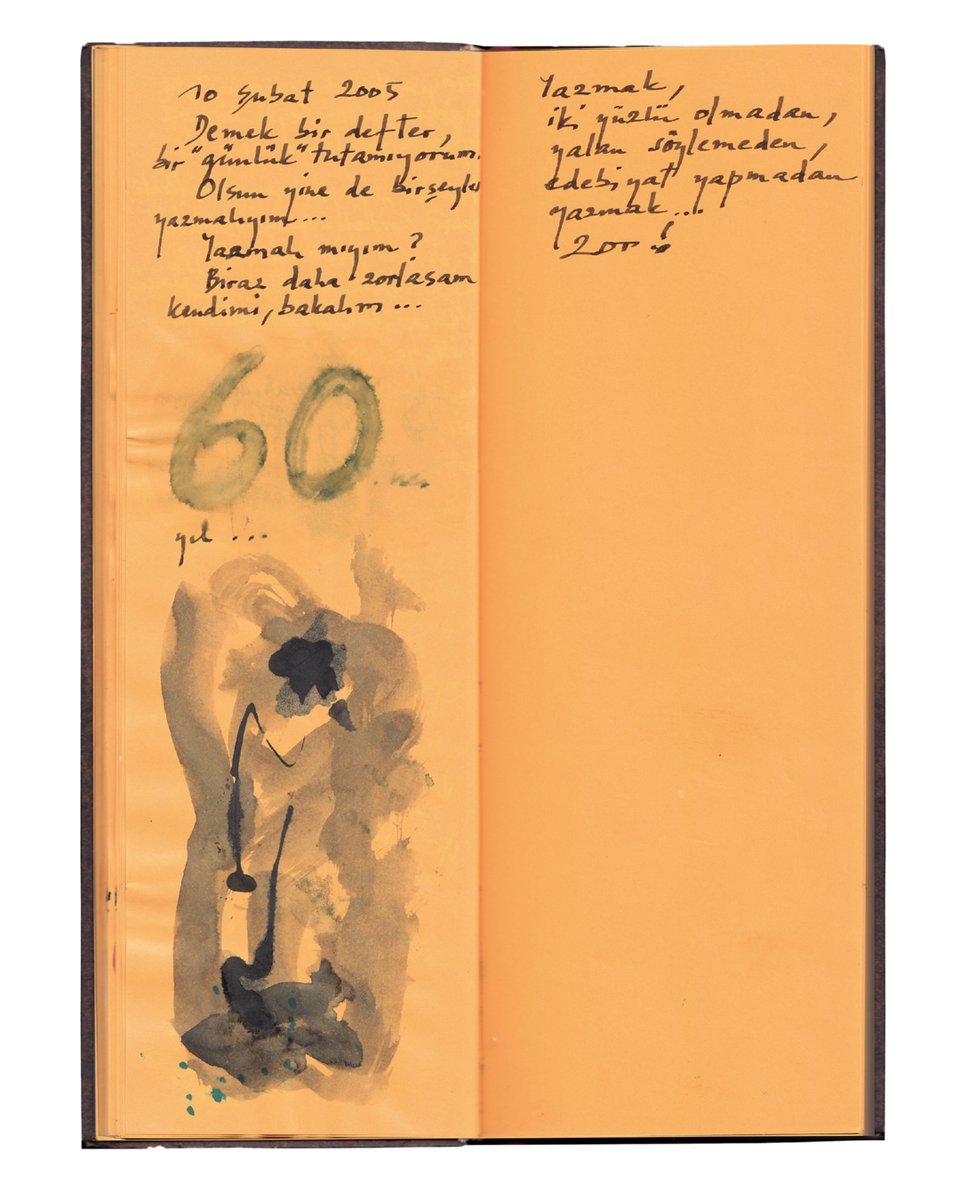 10 Şubat 2005
Demek bir defter,
bir "günlük" tutamıyorum.
Olsun yine de birşeyler
yazmalıyım...
Yazmalı mıyım?
Biraz daha zorlasam
kendimi, bakalım...
60
yıl...
Yazmak,
iki yüzlü olmadan,
yalan söylemeden,
edebiyat yapmadan
yazmak...
Zor!